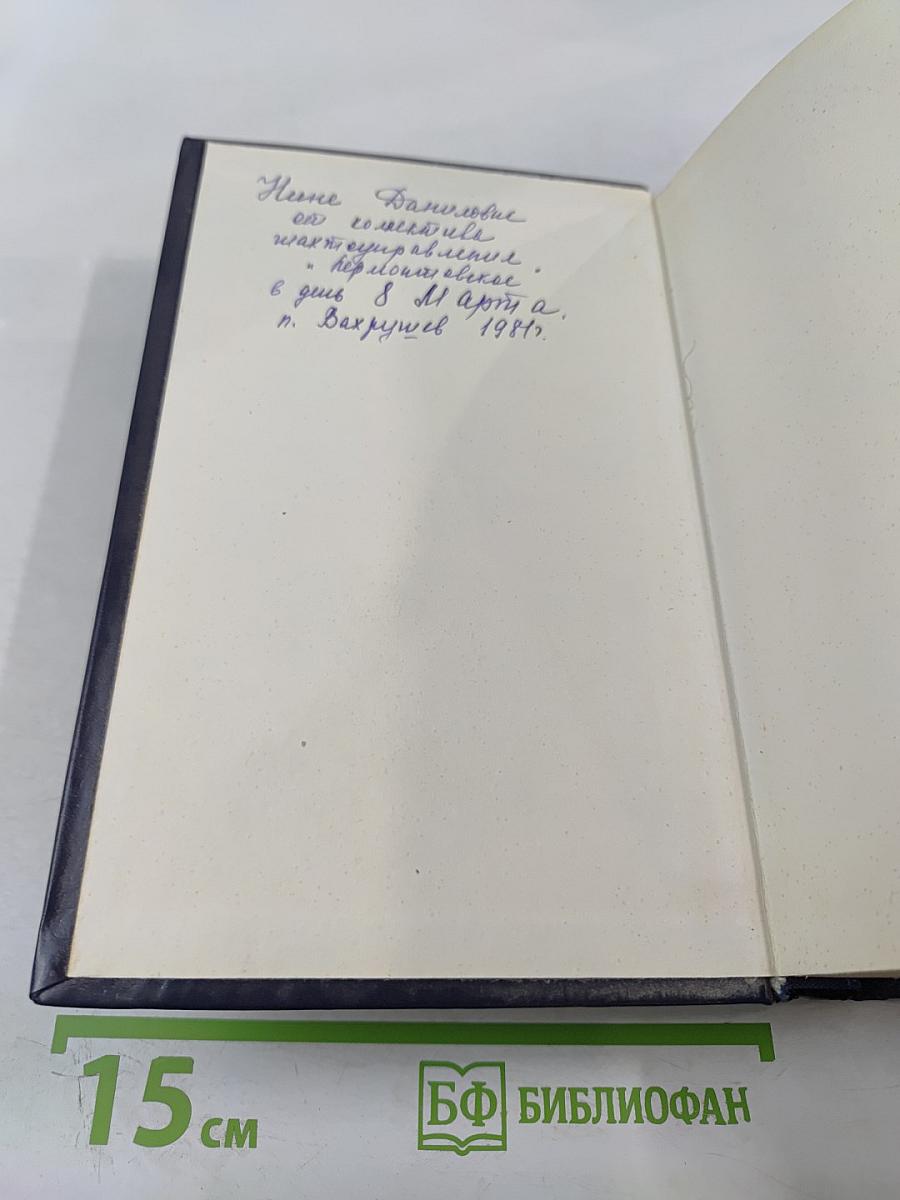 Нине Даниловне
от колектива
шахтоуправления
"Лермонтовское"
в день 8 Марта.
п. Вахрушев 1981г.
15 см
БФ БИБЛИОФАН